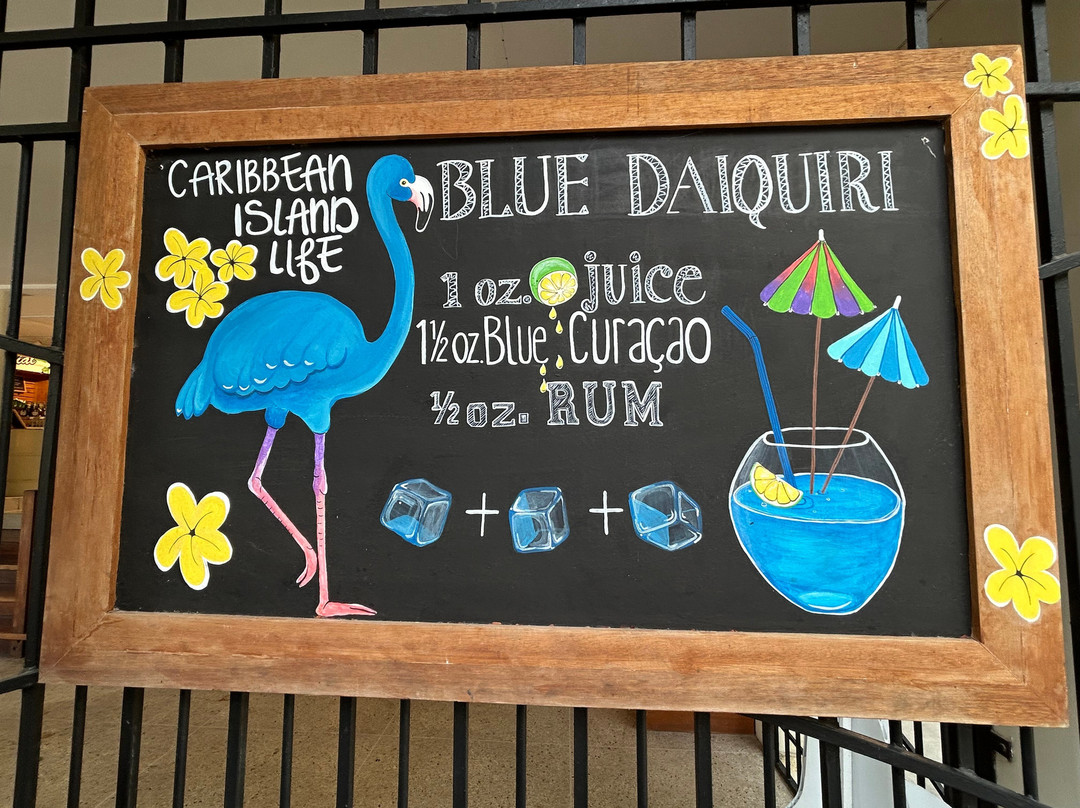 CARIBBEAN
ISLAND
LIFE
BLUE DAIQUIRI
1 oz. juice
1½ oz. Blue Curaçao
½ oz. RUM
+ +